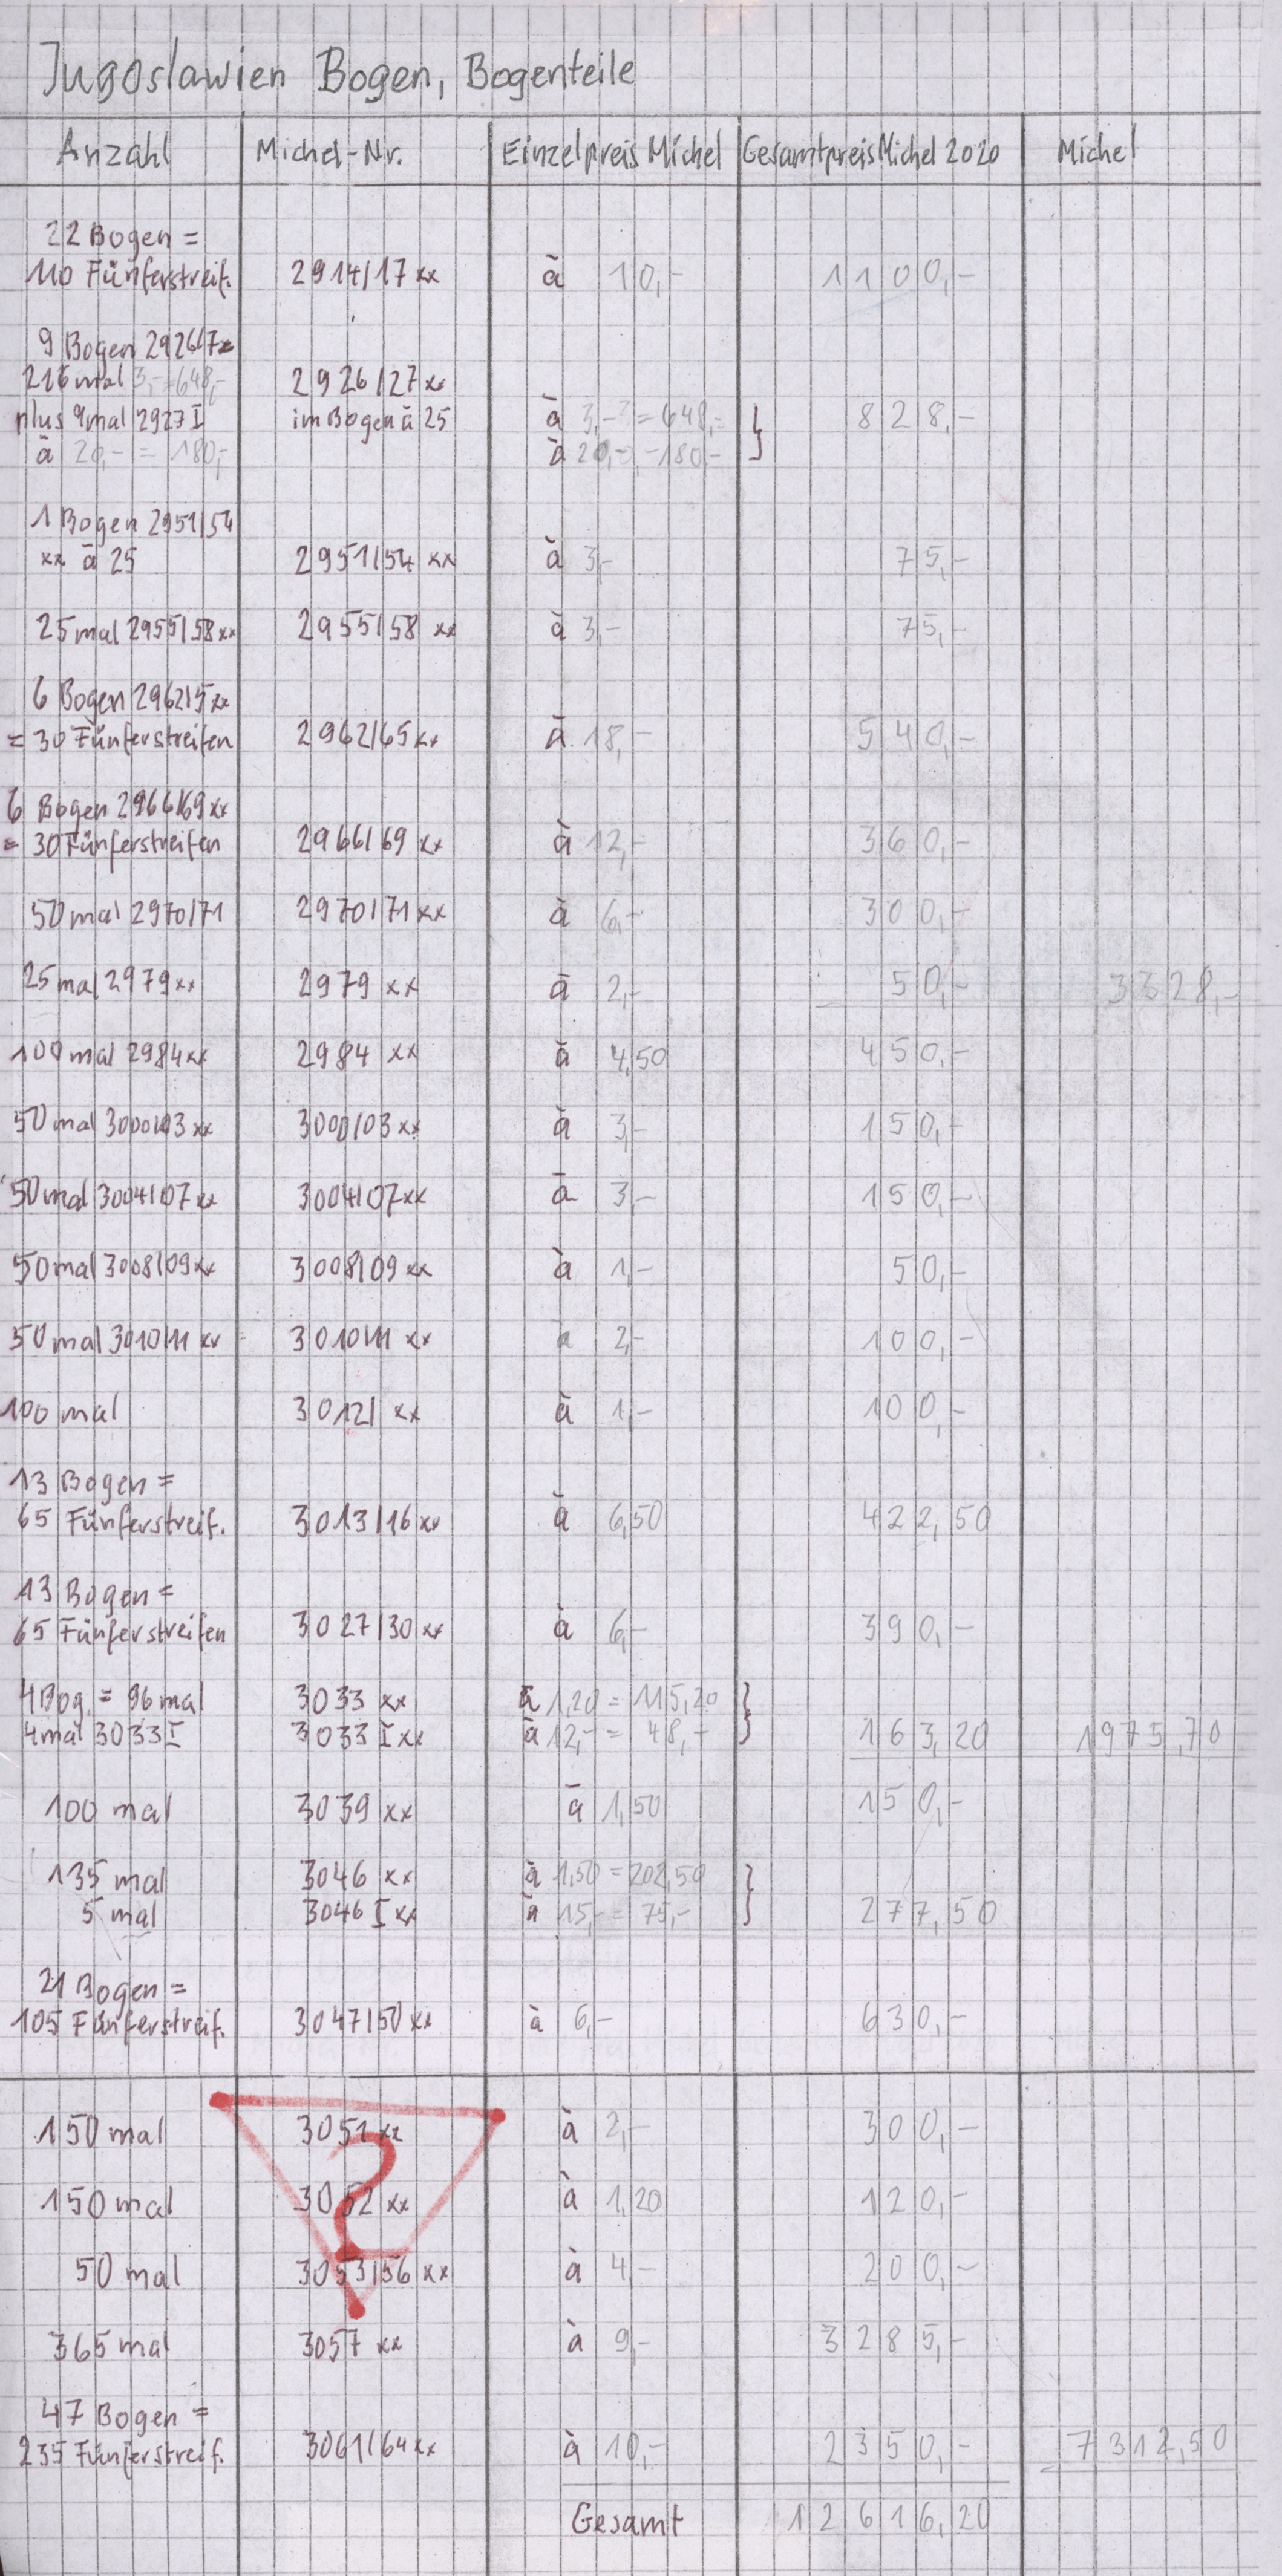 Jugoslawien Bogen, Bogenteile
Anzahl Michel-Nr. Einzelpreis Michel Gesamtpreis Michel 2020 Michel
22 Bogen =
110 Fünferstreif. 2914/17 xx à 10,- 1100,-
9 Bogen 2926/7x
216 mal 3,- = 648,- 2926/27 xx
plus 9 mal 2927 I im Bogen à 25 à 3,- = 648,- } 828,-
à 20,- = 180,- à 20,- 180,-
1 Bogen 2951/54
xx à 25 2951/54 xx à 3,- 75,-
25 mal 2955/58 xx 2955/58 xx à 3,- 75,-
6 Bogen 2962/5 xx
= 30 Fünferstreifen 2962/65 xx à 18,- 540,-
6 Bogen 2966/69 xx
= 30 Fünferstreifen 2966/69 xx à 12,- 360,-
50 mal 2970/71 2970/71 xx à 6,- 300,-
25 mal 2979 xx 2979 xx à 2,- 50,- 3328,-
100 mal 2984 xx 2984 xx à 4,50 450,-
50 mal 3000/03 xx 3000/03 xx à 3,- 150,-
50 mal 3004/07 xx 3004/07 xx à 3,- 150,-
50 mal 3008/09 xx 3008/09 xx à 1,- 50,-
50 mal 3010/11 xx 3010/11 xx à 2,- 100,-
100 mal 3012 xx à 1,- 100,-
13 Bogen =
65 Fünferstreif. 3013/16 xx à 6,50 422,50
13 Bogen =
65 Fünferstreifen 3027/30 xx à 6,- 390,-
4 Bog. = 96 mal 3033 xx à 1,20 = 115,20 }
4 mal 3033 I 3033 I xx à 12,- = 48,- 163,20 1975,70
100 mal 3039 xx à 1,50 150,-
135 mal 3046 xx à 1,50 = 202,50 }
5 mal 3046 I xx à 15,- = 75,- 277,50
21 Bogen =
105 Fünferstreif. 3047/50 xx à 6,- 630,-
150 mal 3051 xx à 2,- 300,-
?
150 mal 3052 xx à 1,20 120,-
50 mal 3053/56 xx à 4,- 200,-
365 mal 3057 xx à 9,- 3285,-
47 Bogen =
235 Fünferstreif. 3061/64 xx à 10,- 2350,- 7312,50
Gesamt 12616,20